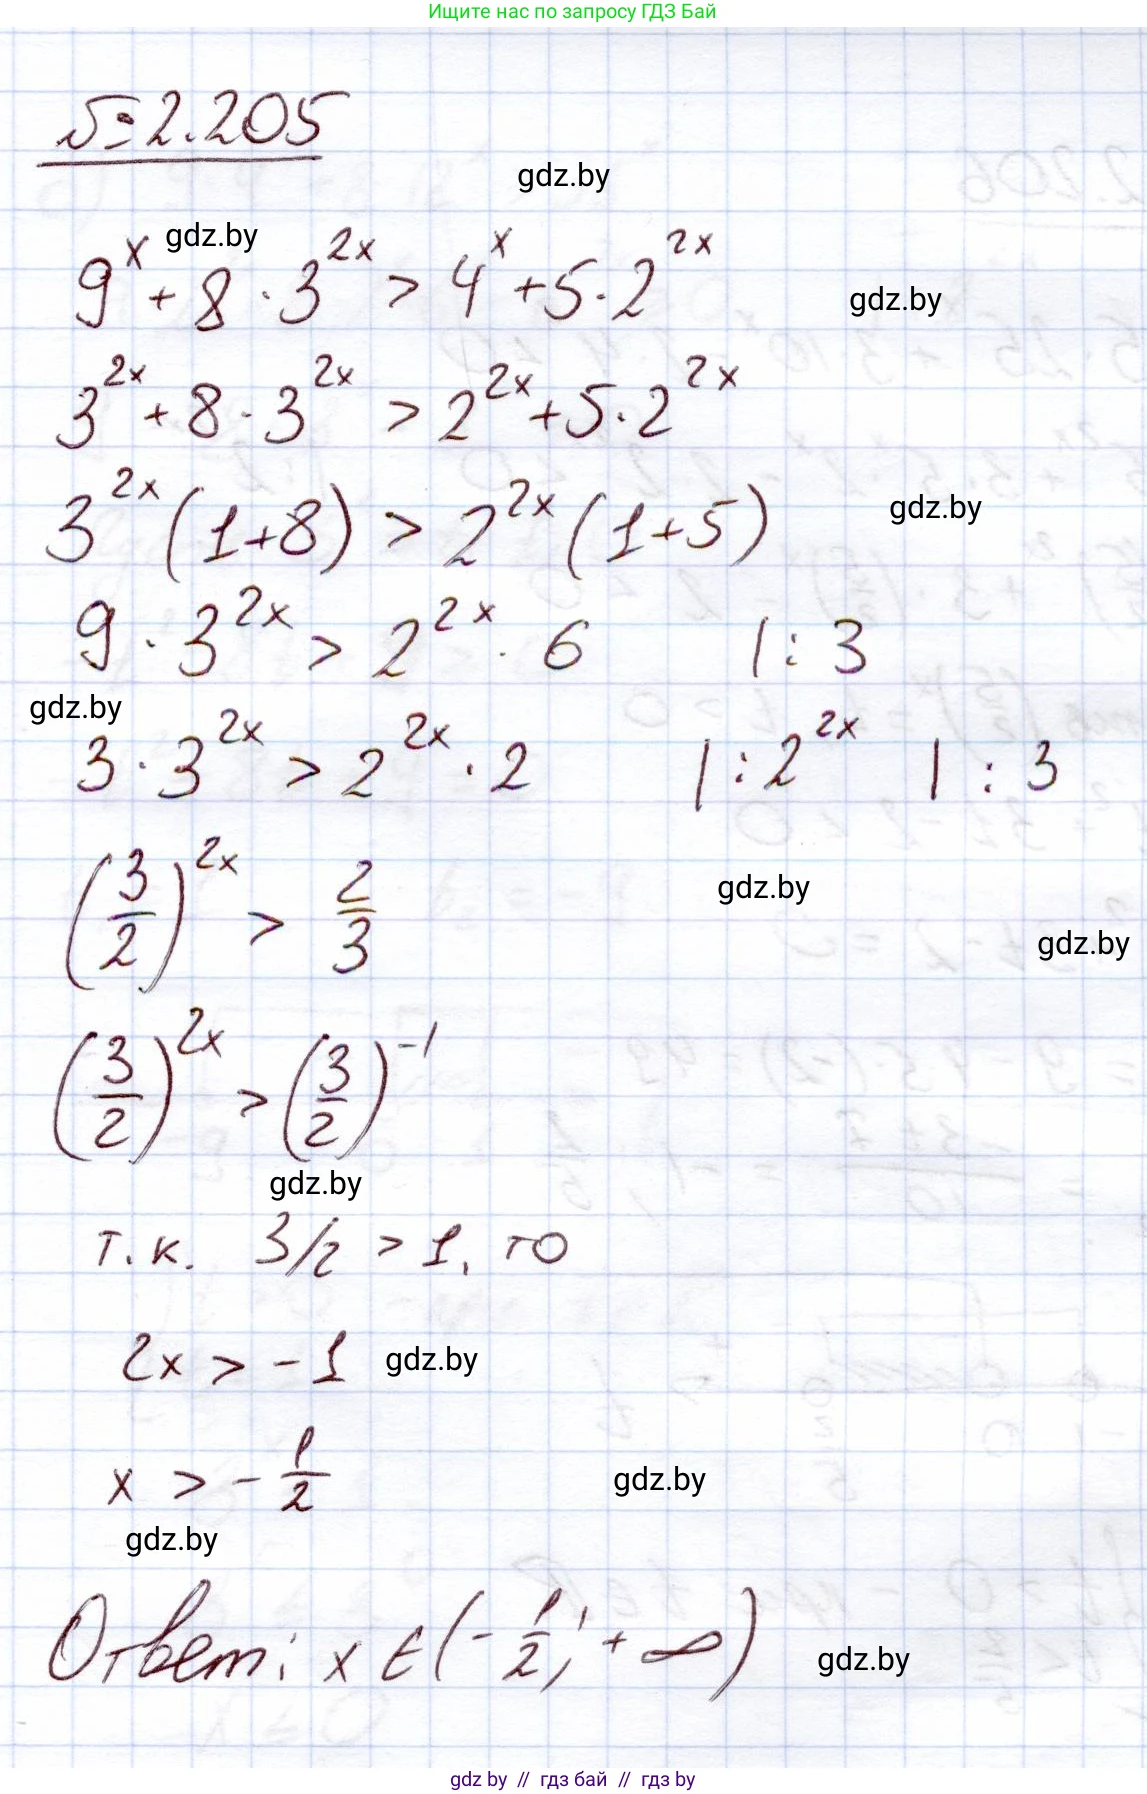 Ищите нас по запросу ГДЗ Бай
№ 2.205
gdz.by
gdz.by
9^x + 8 · 3^{2x} > 4^x + 5 · 2^{2x}
gdz.by
3^{2x} + 8 · 3^{2x} > 2^{2x} + 5 · 2^{2x}
3^{2x} (1+8) > 2^{2x} (1+5)
gdz.by
9 · 3^{2x} > 2^{2x} · 6 | : 3
gdz.by
3 · 3^{2x} > 2^{2x} · 2 | : 2^{2x} | : 3
(3/2)^{2x} > 2/3
gdz.by
gdz.by
(3/2)^{2x} > (3/2)^{-1}
gdz.by
т.к. 3/2 > 1, то
2x > -1
gdz.by
x > -1/2
gdz.by
gdz.by
Ответ: x ∈ (-1/2; +∞)
gdz.by
gdz by // гдз бай // гдз by